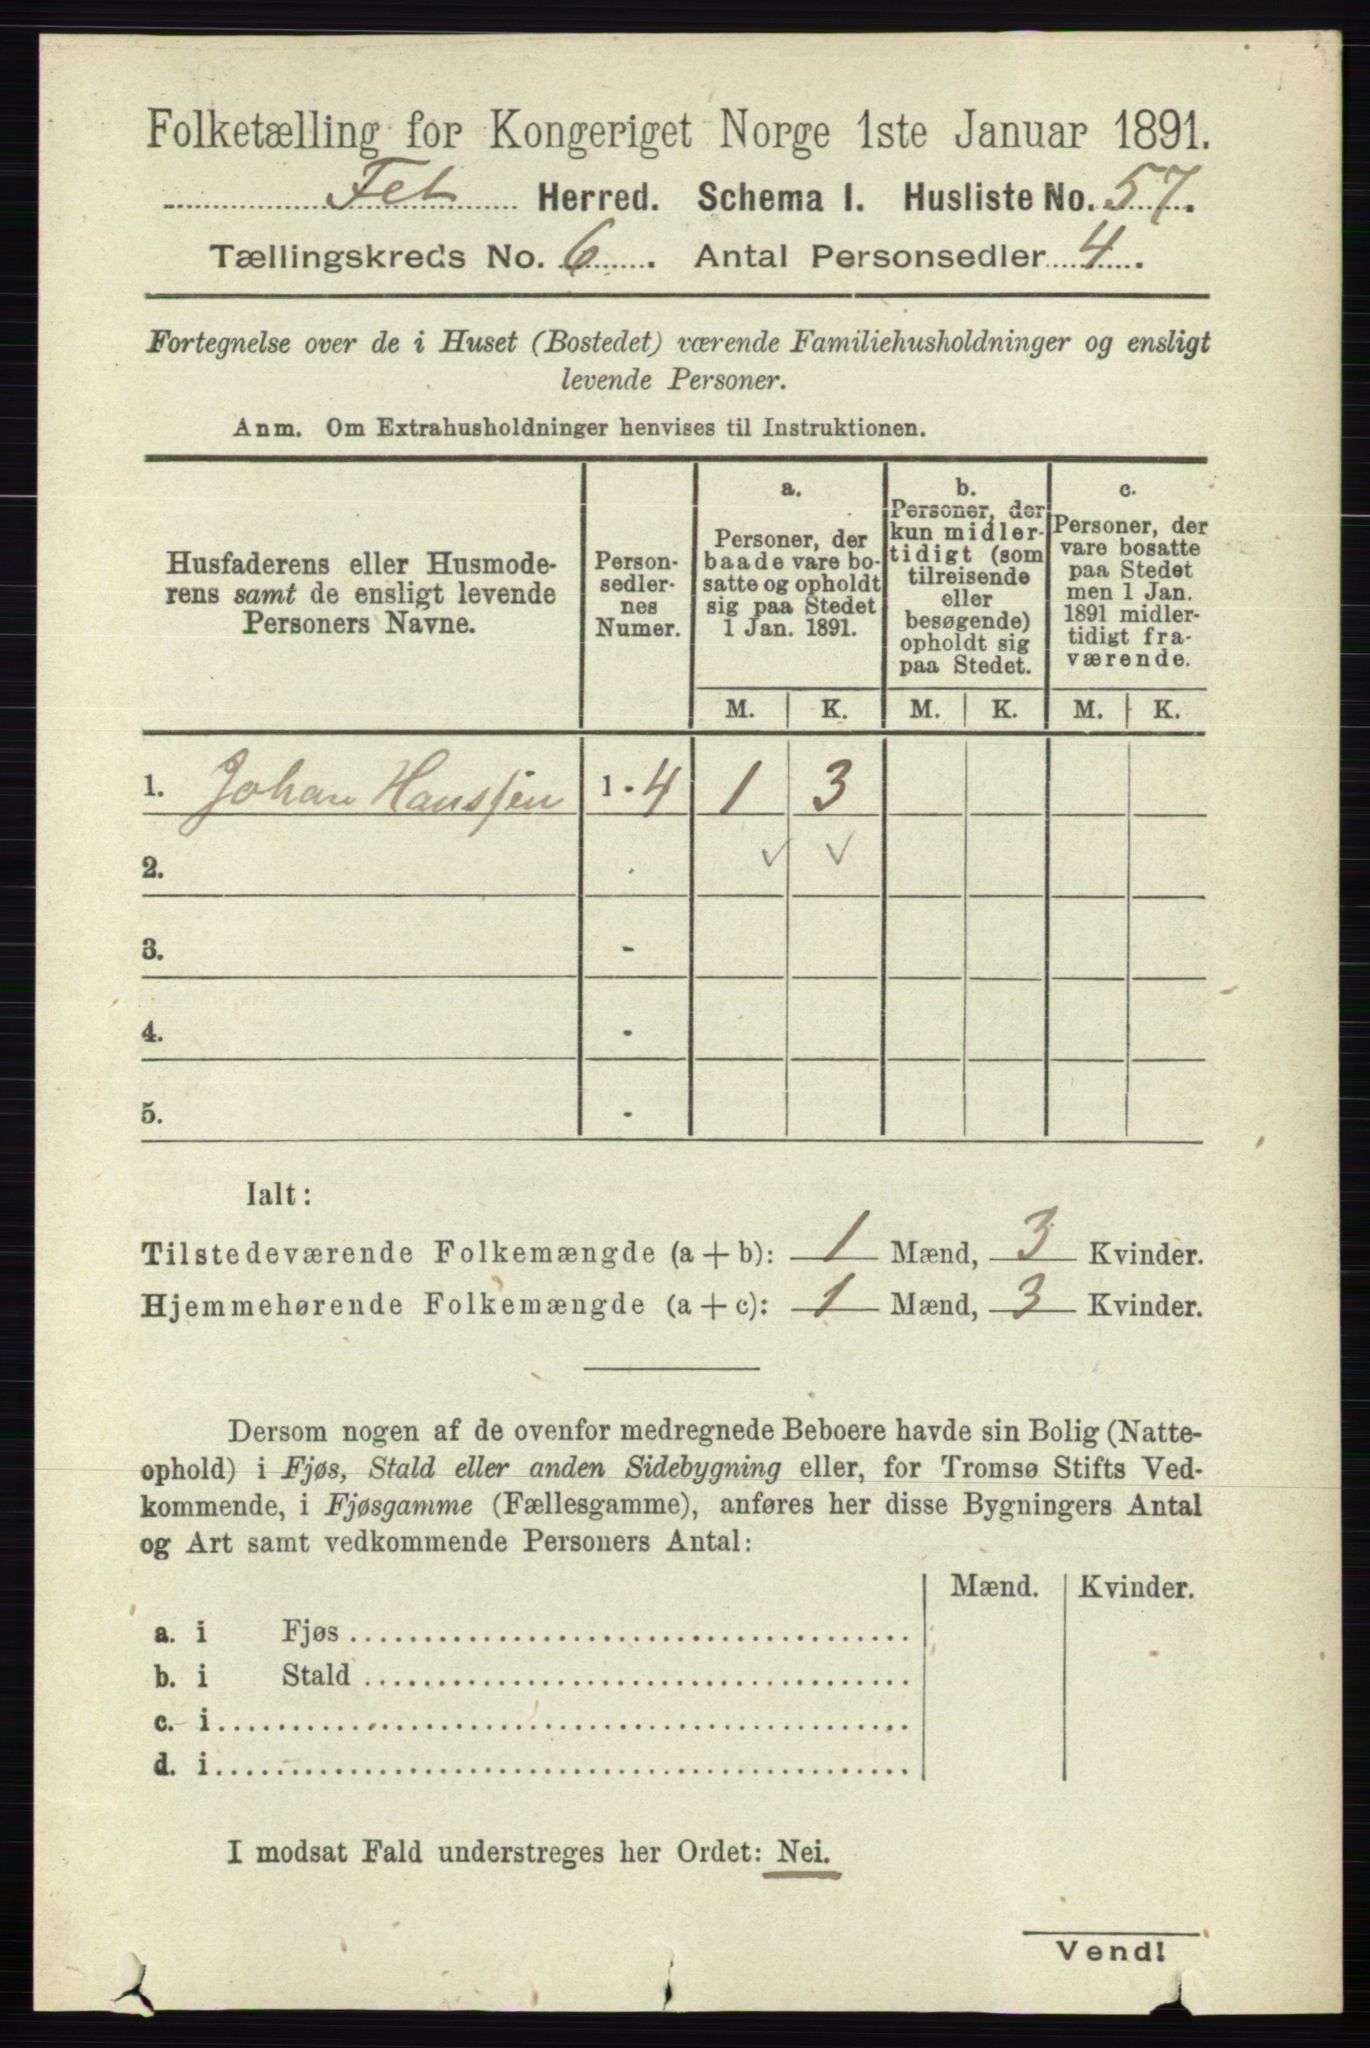 Folketælling for Kongeriget Norge 1ste Januar 1891.
Fet Herred. Schema I. Husliste No. 57.
Tællingskreds No. 6. Antal Personsedler 4.
Fortegnelse over de i Huset (Bostedet) værende Familiehusholdninger og ensligt
levende Personer.
Anm. Om Extrahusholdninger henvises til Instruktionen.
Husfaderens eller Husmode-
rens samt de ensligt levende
Personers Navne.
Person-
sedler-
nes
Numer.
a.
Personer, der
baade vare bo-
satte og opholdt
sig paa Stedet
1 Jan. 1891.
b.
Personer, der
kun midler-
tidigt (som
tilreisende
eller
besøgende)
opholdt sig
paa Stedet.
c.
Personer, der
vare bosatte
paa Stedet
men 1 Jan.
1891 midler-
tidigt fra-
værende.
M. K. M. K. M. K.
1. Johan Hanssen 1 - 4 1 3
2. - ✓ ✓
3. -
4. -
5. -
Ialt:
Tilstedeværende Folkemængde (a + b): 1 Mænd, 3 Kvinder.
Hjemmehørende Folkemængde (a + c): 1 Mænd, 3 Kvinder.
Dersom nogen af de ovenfor medregnede Beboere havde sin Bolig (Natte-
ophold) i Fjøs, Stald eller anden Sidebygning eller, for Tromsø Stifts Ved-
kommende, i Fjøsgamme (Fællesgamme), anføres her disse Bygningers Antal
og Art samt vedkommende Personers Antal:
Mænd. Kvinder.
a. i Fjøs
b. i Stald
c. i
d. i
I modsat Fald understreges her Ordet: Nei.
Vend!